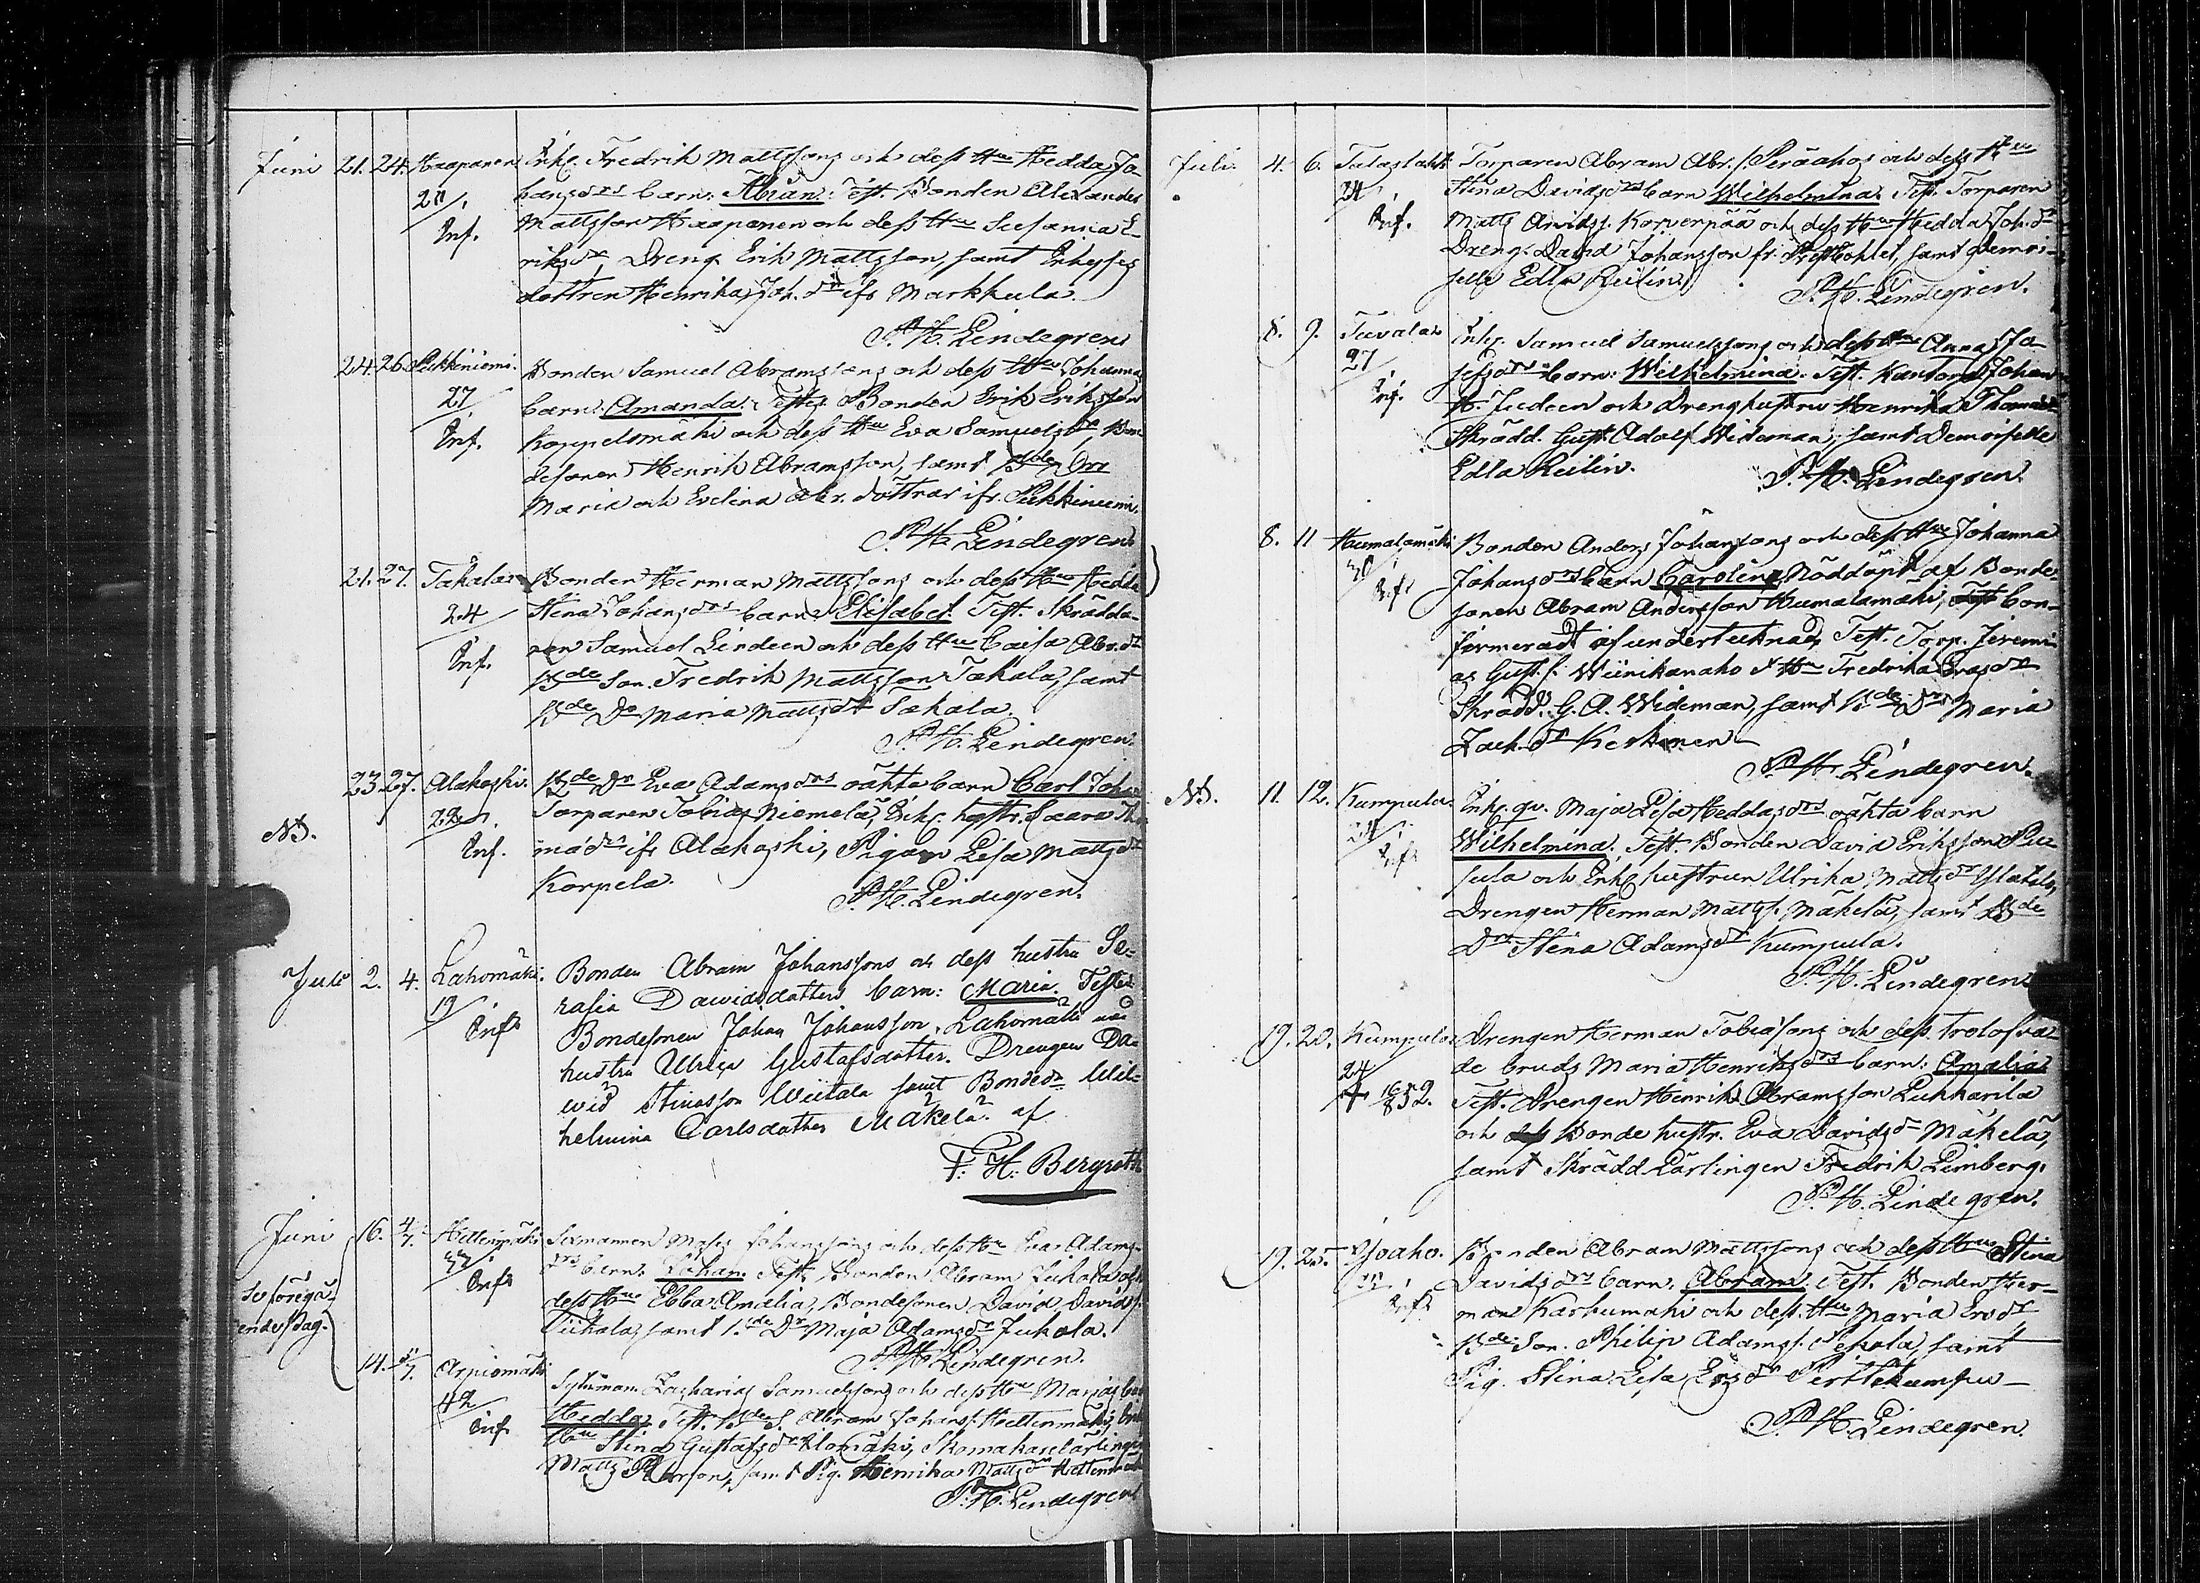 Juni 21. 24. Haapanen Inhs. Fredrik Mattssons och dess Hu Hedda Jo-
28/1 hansdrs barn: Abram. Test. Bonden Alexander
Inf. Mattsson Haapanen och dess Hu Susanna E-
riksdr, Dreng. Erik Mattsson, samt Inhyses
dottren Henrika Joh. dr ifr Markkula.
P. H. Lindegren
24. 26. Pukkiniemi. Bonden Samuel Abramssons och dess Hu Johanna
27/ barn: Amanda. Testes Bonden Erik Eriksson
Inf. Koppelomäki och dess Hu Eva Samuelsdr, Bon-
desonen Henrik Abramsson, samt Bde
Maria och Evelina Abr. döttrar ifr. Pukkiniemi.
P. H. Lindegren
21. 27. Takala Bonden Herman Mattssons och dess Hu Hedda
24/ Stina Johansdrs barn Elisabet. Test. Skrädda-
Inf. ren Samuel Lindeen och dess Hu Caisa Abr. dr
Bde Son. Fredrik Mattsson Takala, samt
Bde Dr Maria Mattsdr Takala.
P. H. Lindegren.
23. 27. Alakoski. Bde Dr Eva Adamsdrs oäkta barn Carl Johan
NB. 22/ Torparen Tobias Niemelä, Inhs. hustr. Caara
Inf. ifr Alakoski, Pigan Lisa Mattsdr
Korpela. P. H. Lindegren.
Juli 2. 4. Lahomäki. Bonden Abram Johanssons och dess hustru Se-
19/ rafia Davidsdotters barn: Maria. Testes
Inf. Bondesonen Johan Johansson Lahomäki
hustru Ulrica Gustafsdotter. Drengen Da-
vid Wiitala samt Bondedr Wil-
helmina Carlsdotter Mäkelä. af
F. H. Bergroth
Juni 16. 4/7. Hietenmäki Sexmannen Moses Johanssons och dess Hu Eva Adams-
drs barn: Johan. Test. Bonden Abram Jukola och
Se föregå- Inf. dess Hu Ebba Amalia, Bondesonen David Davids.
ende sidag. Jukola, samt Bde Dr Maja Adamsdr Jukola.
P. H. Lindegren.
14. 5/7. Arpiomäki Sytnman Zacharias Samuelssons och dess Hu Marias barn
42/ Hedda, Test. Bde S. Abram Johans. Hietenmäki,
Inf. Hu Stina Gustafsdr Alomäki, Skomakarelärlingen
Matts Petersson, samt Pig. Henrika Mattsdr Hietenmäki
P. H. Lindegren
Juli. 4. 6. Torparen Abram Abr. s. Peräahos och dess Hu
21/ Stina Davidsdrs barn Wilhelmina. Test. Torparen
Inf. Matts Anders. Korvenpää och dess Hu Hedda Joh. dr
Dreng. David Johansson fr. samt Demoi-
selle Edla Reilin.
P. H. Lindegren.
8. 9. Tuvala Inhs. Samuel Samuelssons och dess Hu Anna Jo-
27/ sefsdrs barn: Wilhelmina. Test. Kantorn Johan
Inf. H. Judeen och Drenghustrun Henrika
Skrädd. Gust. Adolf Wideman, samt Demoiselle
Edla Reilin. P. H. Lindegren.
8. 11 Humalamäki Bonden Anders Johanssons och dess Hu Johanna
30/ Johansdrs barn Carolina Nöddöpt af Bonde-
Inf. sonen Abram Andersson Humalamäki, con-
firmeradt af undertecknad, Test. Torp. Jeremi-
as Gust. s. Wiinikanaho & Hu Fredrika Ersdr
Skrädd. G. A. Wideman, samt Bde Dr Maria
Zach. dr Keskinen
P. H. Lindegren.
NB. 11. 12. Kumpula. Inhs. qv. Maja Lisa Heddasdrs oäkta barn
21/ Wilhelmina. Test. Bonden David Eriksson Puu-
Inf. sula och Inhs hustrun Ulrika Mattsdr Ylatalo,
Drengen Herman Matts s. Mäkelä, samt Bde
Dr Stina Adamsdr Kumpula.
P. H. Lindegren
19. 20. Kumpula Drengen Herman Tobiassons och dess trolofva-
24/ de bruds Maria Henriksdrs barn: Amalia
+ 852. Test. Drengen Henrik Abramsson Lukkarila
och Bonde hustr. Eva Davidsdr Mäkelä,
samt Skrädd Lärlingen Fredrik Limberg.
P. H. Lindegren.
19. 25. Ojoaho. Bonden Abram Mattssons och dess Hu Stina
Davidsdrs barn: Abram. Test. Bonden Her-
Inf. man Karhumäki och dess Hu Maria Ersdr,
Bde Son. Philip Adams s. Pekola, samt
Pig. Stina Lisa Ersdr Perttekumpu
P. H. Lindegren.